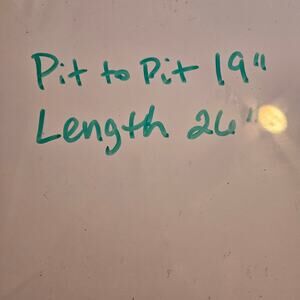 Pit to Pit 19"
Length 26"